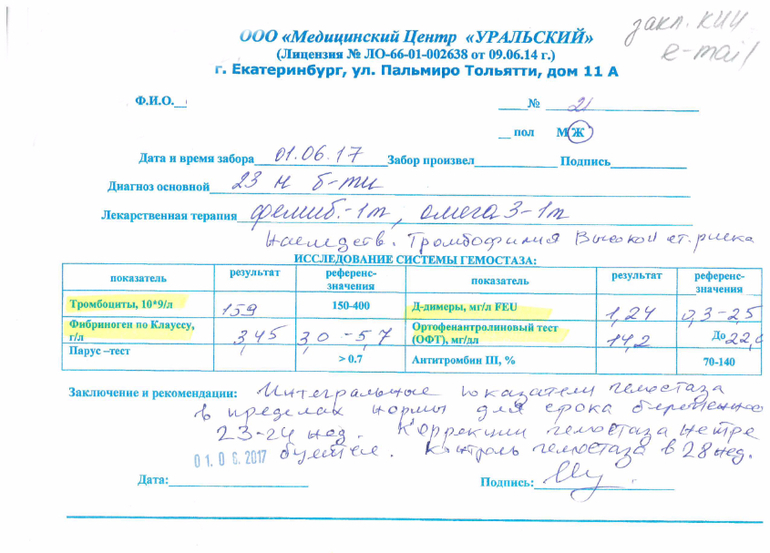 ООО «Медицинский Центр «УРАЛЬСКИЙ»
(Лицензия № ЛО-66-01-002638 от 09.06.14 г.)
г. Екатеринбург, ул. Пальмиро Тольятти, дом 11 А
закл. КИИ
e-mail
Ф.И.О. № 21
пол М Ж
Дата и время забора 01.06.17 Забор произвел Подпись
Диагноз основной 23 н б-ти
Лекарственная терапия фемиб.-1т, омега 3-1т
Наследств. Тромбофилия Высокой ст. риска
ИССЛЕДОВАНИЕ СИСТЕМЫ ГЕМОСТАЗА:
показатель результат референс-значения показатель результат референс-значения
Тромбоциты, 10*9/л 159 150-400 Д-димеры, мг/л FEU 1,24 0,3-2,5
Фибриноген по Клауссу, г/л 3,45 3,0-5,7 Ортофенантролиновый тест (ОФТ), мг/дл 14,2 До 22,0
Парус –тест > 0.7 Антитромбин III, % 70-140
Заключение и рекомендации: Интегральные показатели гемостаза
в пределах нормы для срока беременнос
23-24 нед. Коррекции гемостаза не тре
буется. Контроль гемостаза в 28 нед.
01.06.2017
Дата: Подпись: